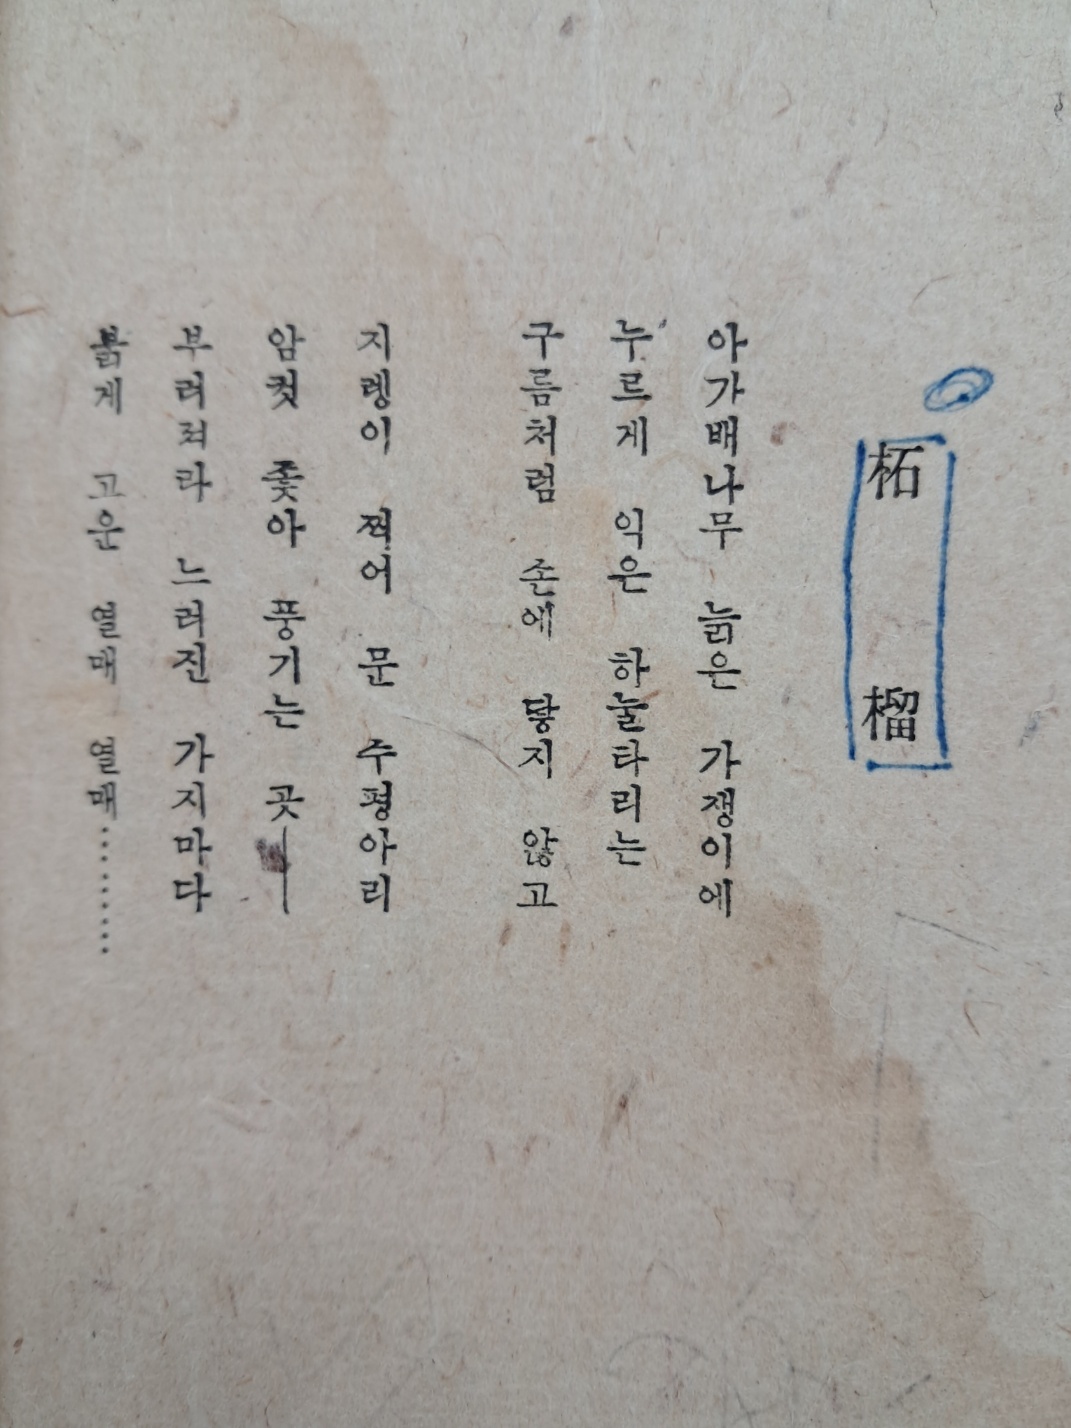 柘榴
아가배나무 늙은 가쟁이에
누르게 익은 하눌타리는
구름처럼 손에 닿지 않고
지렝이 찍어 문 주평아리
암컷 좇아 풍기는 곳―
부러져라 느러진 가지마다
붉게 고운 열매 열매………